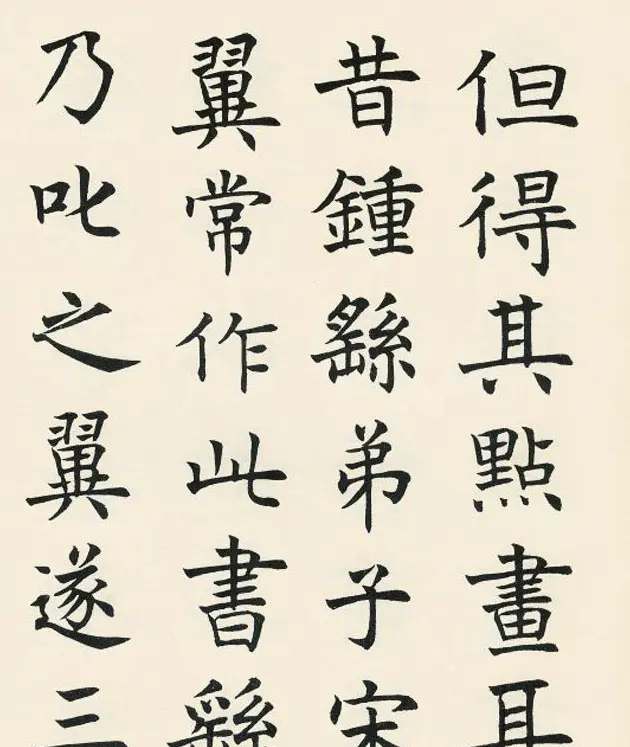 但得其點畫耳
昔鍾繇弟子宋
翼常作此書繇
乃叱之翼遂三